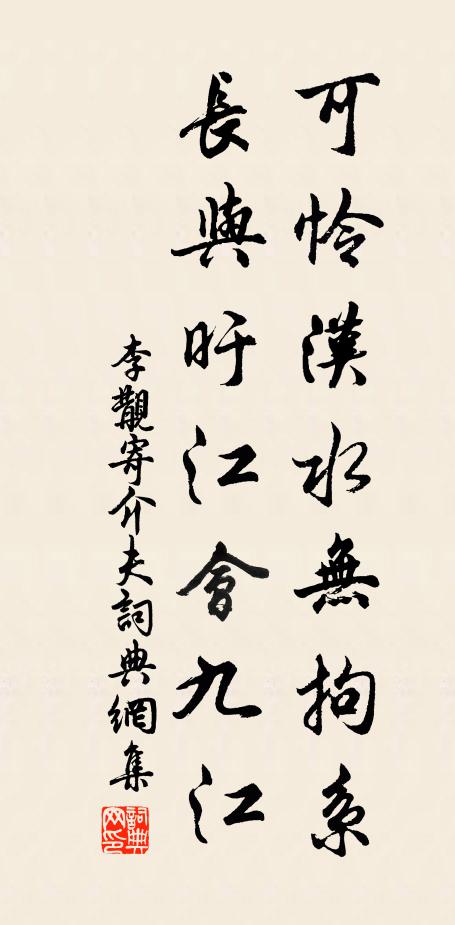 可憐漢水無拘系
長與旴江會九江
李覯寄介夫詞典網集
詞典網印